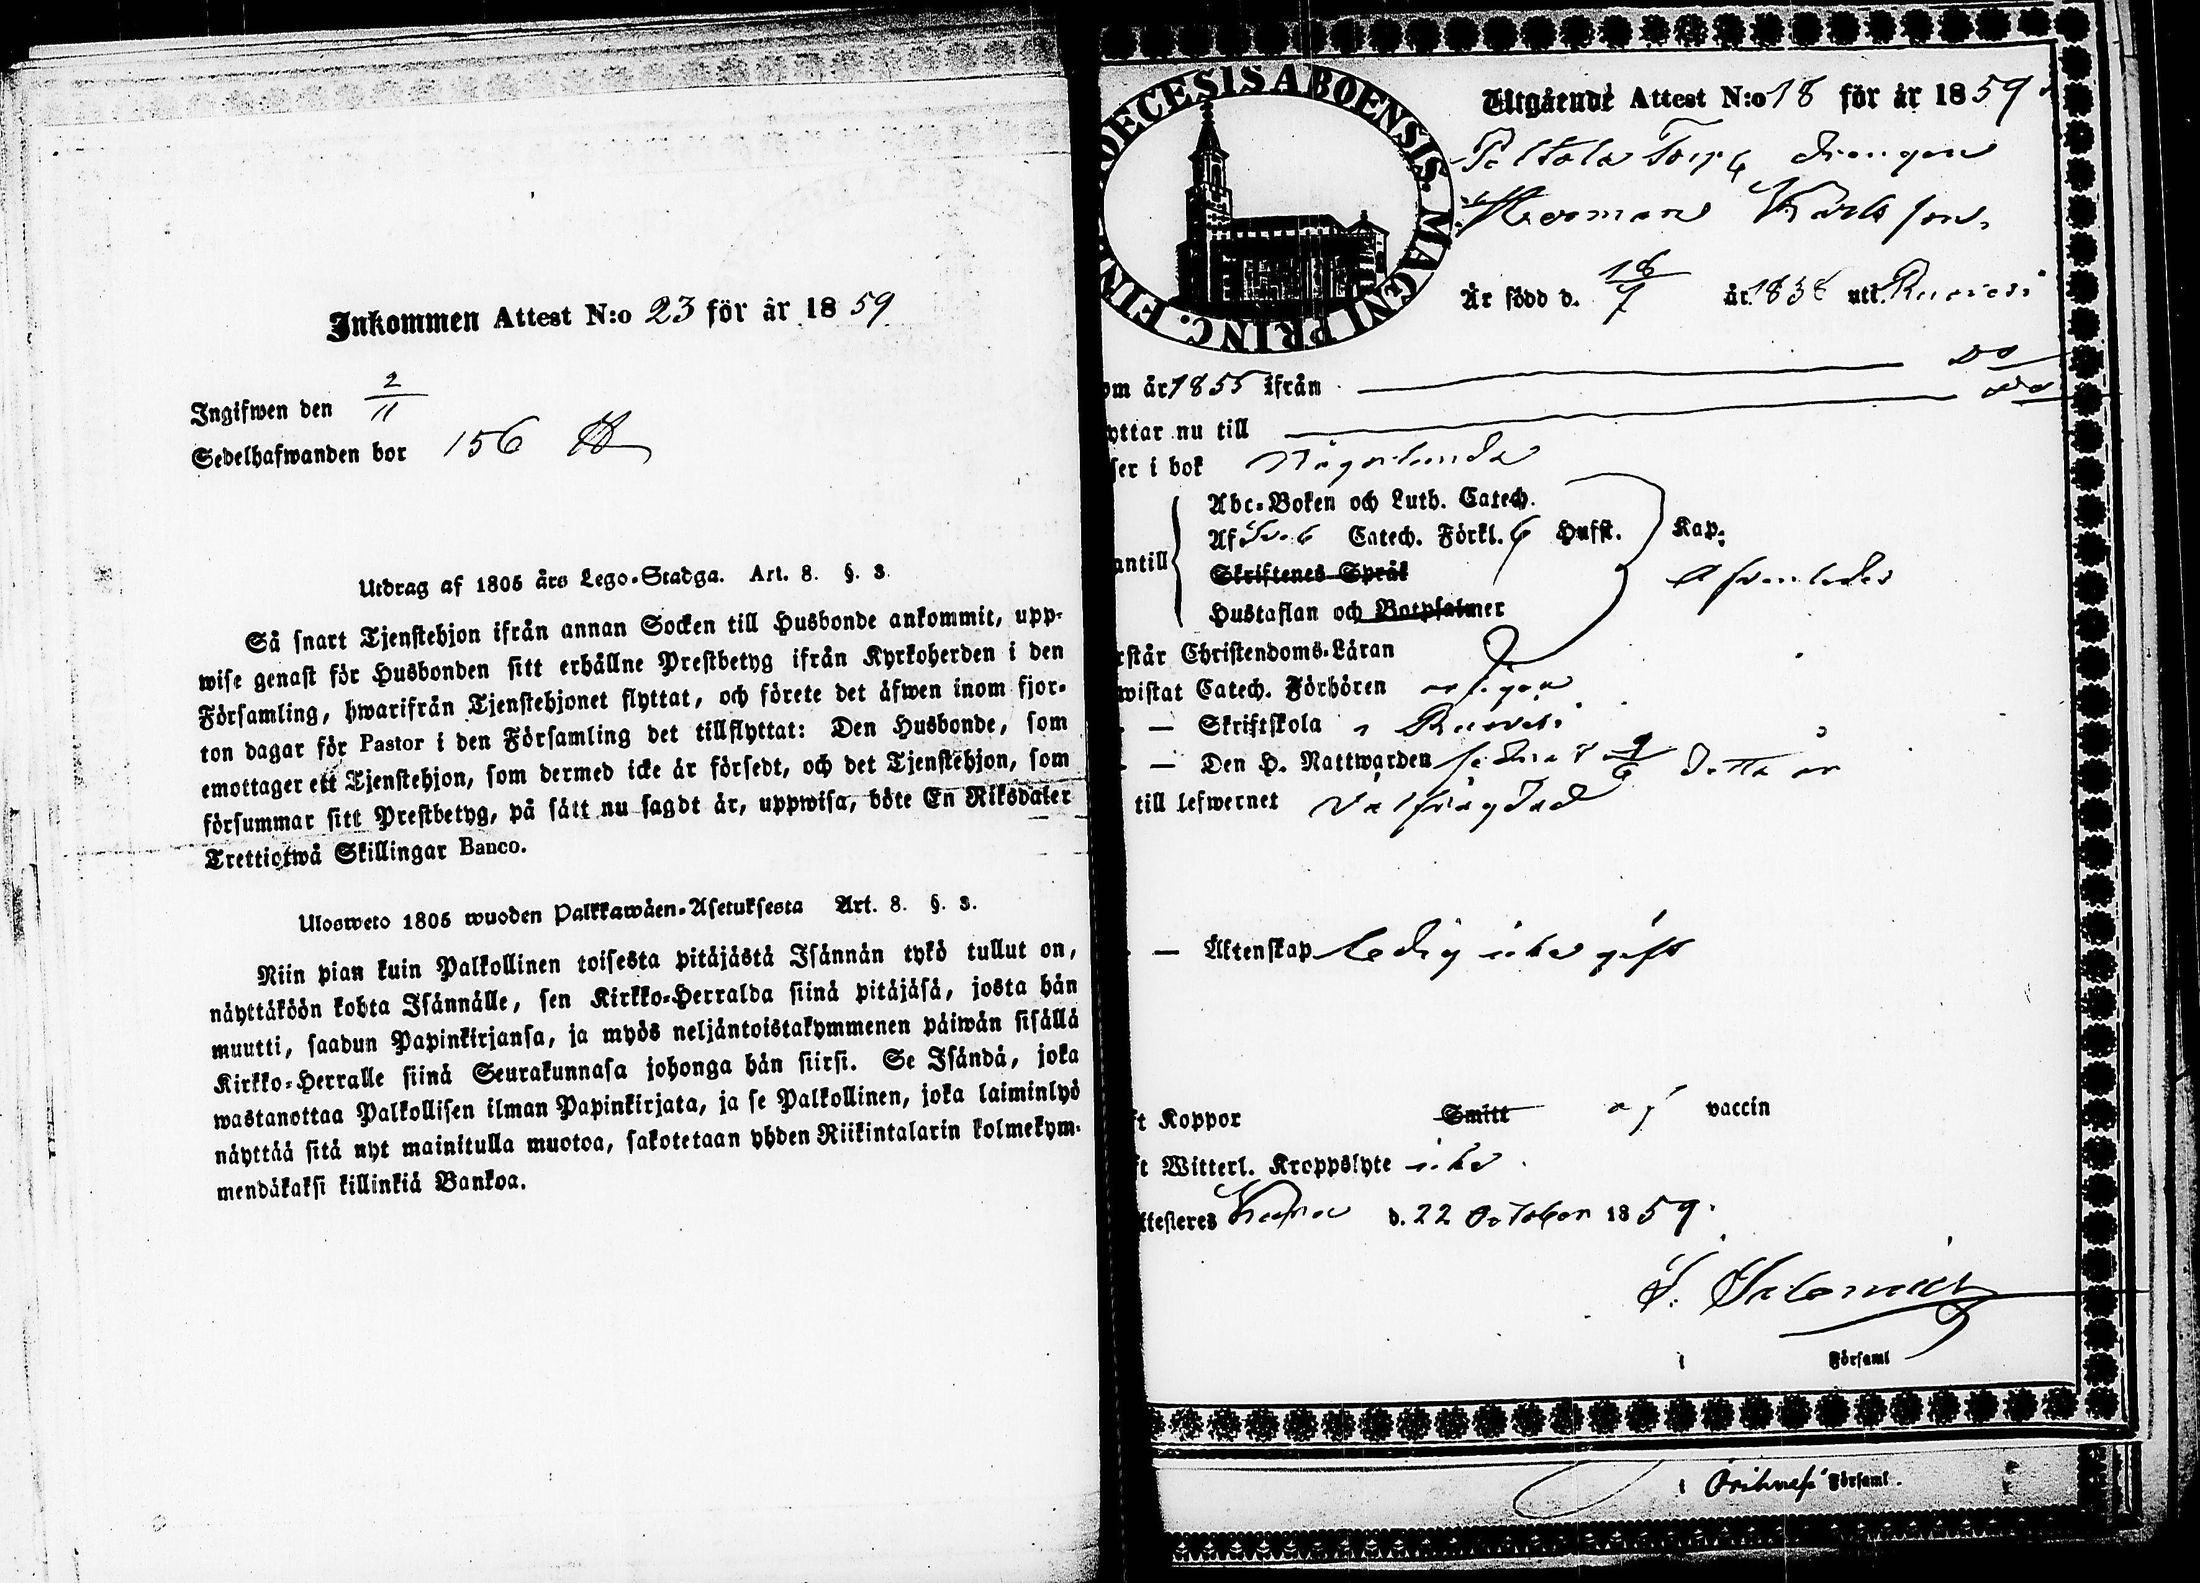 Inkommen Attest N:o 23 för år 1859
Ingifwen den 2/11
Sedelhafwanden bor 156
Utdrag af 1805 års Lego-Stadga. Art. 8. §. 3.
Så snart Tjenstehjon ifrån annan Socken till Husbonde ankommit, upp-
wise genast för Husbonden sitt erhållne Prestbetyg ifrån Kyrkoherden i den
Församling, hwarifrån Tjenstehjonet flyttat, och förete det äfwen inom fjor-
ton dagar för Pastor i den Församling det tillflyttat: Den Husbonde, som
emottager ett Tjenstehjon, som dermed icke är försedt, och det Tjenstehjon, som
försummar sitt Prestbetyg, på sätt nu sagdt är, uppwisa, böte En Riksdaler
Trettiotwå Skillingar Banco.
Ulosweto 1805 wuoden Palkkawäen-Asetuksesta Art. 8. §. 3.
Niin pian kuin Palkollinen toisesta pitäjästä Isännän tykö tullut on,
näyttäköön kohta Isännälle, sen Kirkko-Herralda siinä pitäjäsä, josta hän
muutti, saadun Papinkirjansa, ja myös neljäntoistakymmenen päiwän sisällä
Kirkko-Herralle siinä Seurakunnasa johonga hän siirsi. Se Isändä, joka
wastanottaa Palkollisen ilman Papinkirjata, ja se Palkollinen, joka laiminlyö
näyttää sitä nyt mainitulla muotoa, sakotetaan yhden Riikintalarin kolmekym-
mendäkaksi killinkiä Bankoa.
OECESIS ABOENSIS. MAGNI PRINC. FIN
Utgående Attest N:o 18 för år 1859
Torp drengen
Herman Karlsson
Är född d. 18/7 år 183 utt. Ruovesi
om år 1855 ifrån Do
yttar nu till do
ser i bok någorlunda
Abc-Boken och Luth. Catech.
Af Catech. Förkl. 6 Hufst. Kap.
antill
Skriftenes Språk
Hustaflan och Botpsalmer
rstår Christendoms-Läran
wistat Catech. Förhören
— Skriftskola i Ruovesi
— Den H. Nattwarden sednast 9/6 detta år
till lefwernet välfrägdad
— Äktenskap ledig icke gift
ft Koppor Smitt af vaccin
ft Witterl. Kroppslyte icke
ttesteres d. 22 October 1859.
i Församl
i Orihvesi Församl.